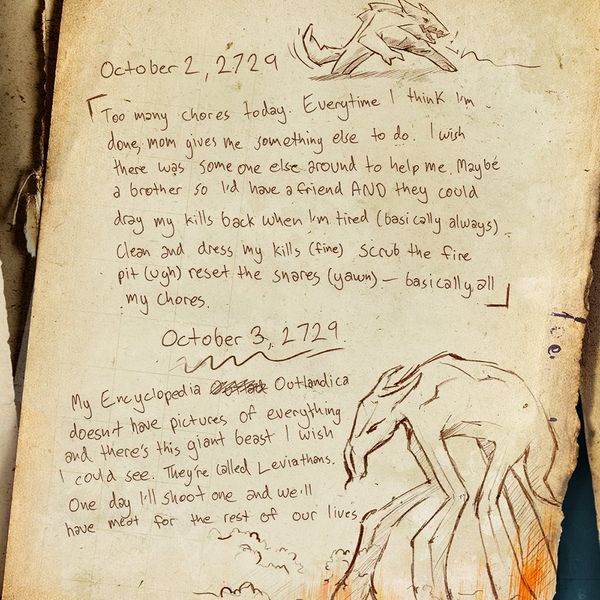 October 2, 2729
Too many chores today. Everytime I think I'm
done, mom gives me something else to do. I wish
there was someone else around to help me. Maybe
a brother so I'd have a friend AND they could
drag my kills back when I'm tired (basically always)
clean and dress my kills (fine) scrub the fire
pit (ugh) reset the snares (yawn) — basically all
my chores.
October 3, 2729
My Encyclopedia Outlandica
doesn't have pictures of everything
and there's this giant beast I wish
I could see. They're called Leviathans.
One day I'll shoot one and we'll
have meat for the rest of our lives